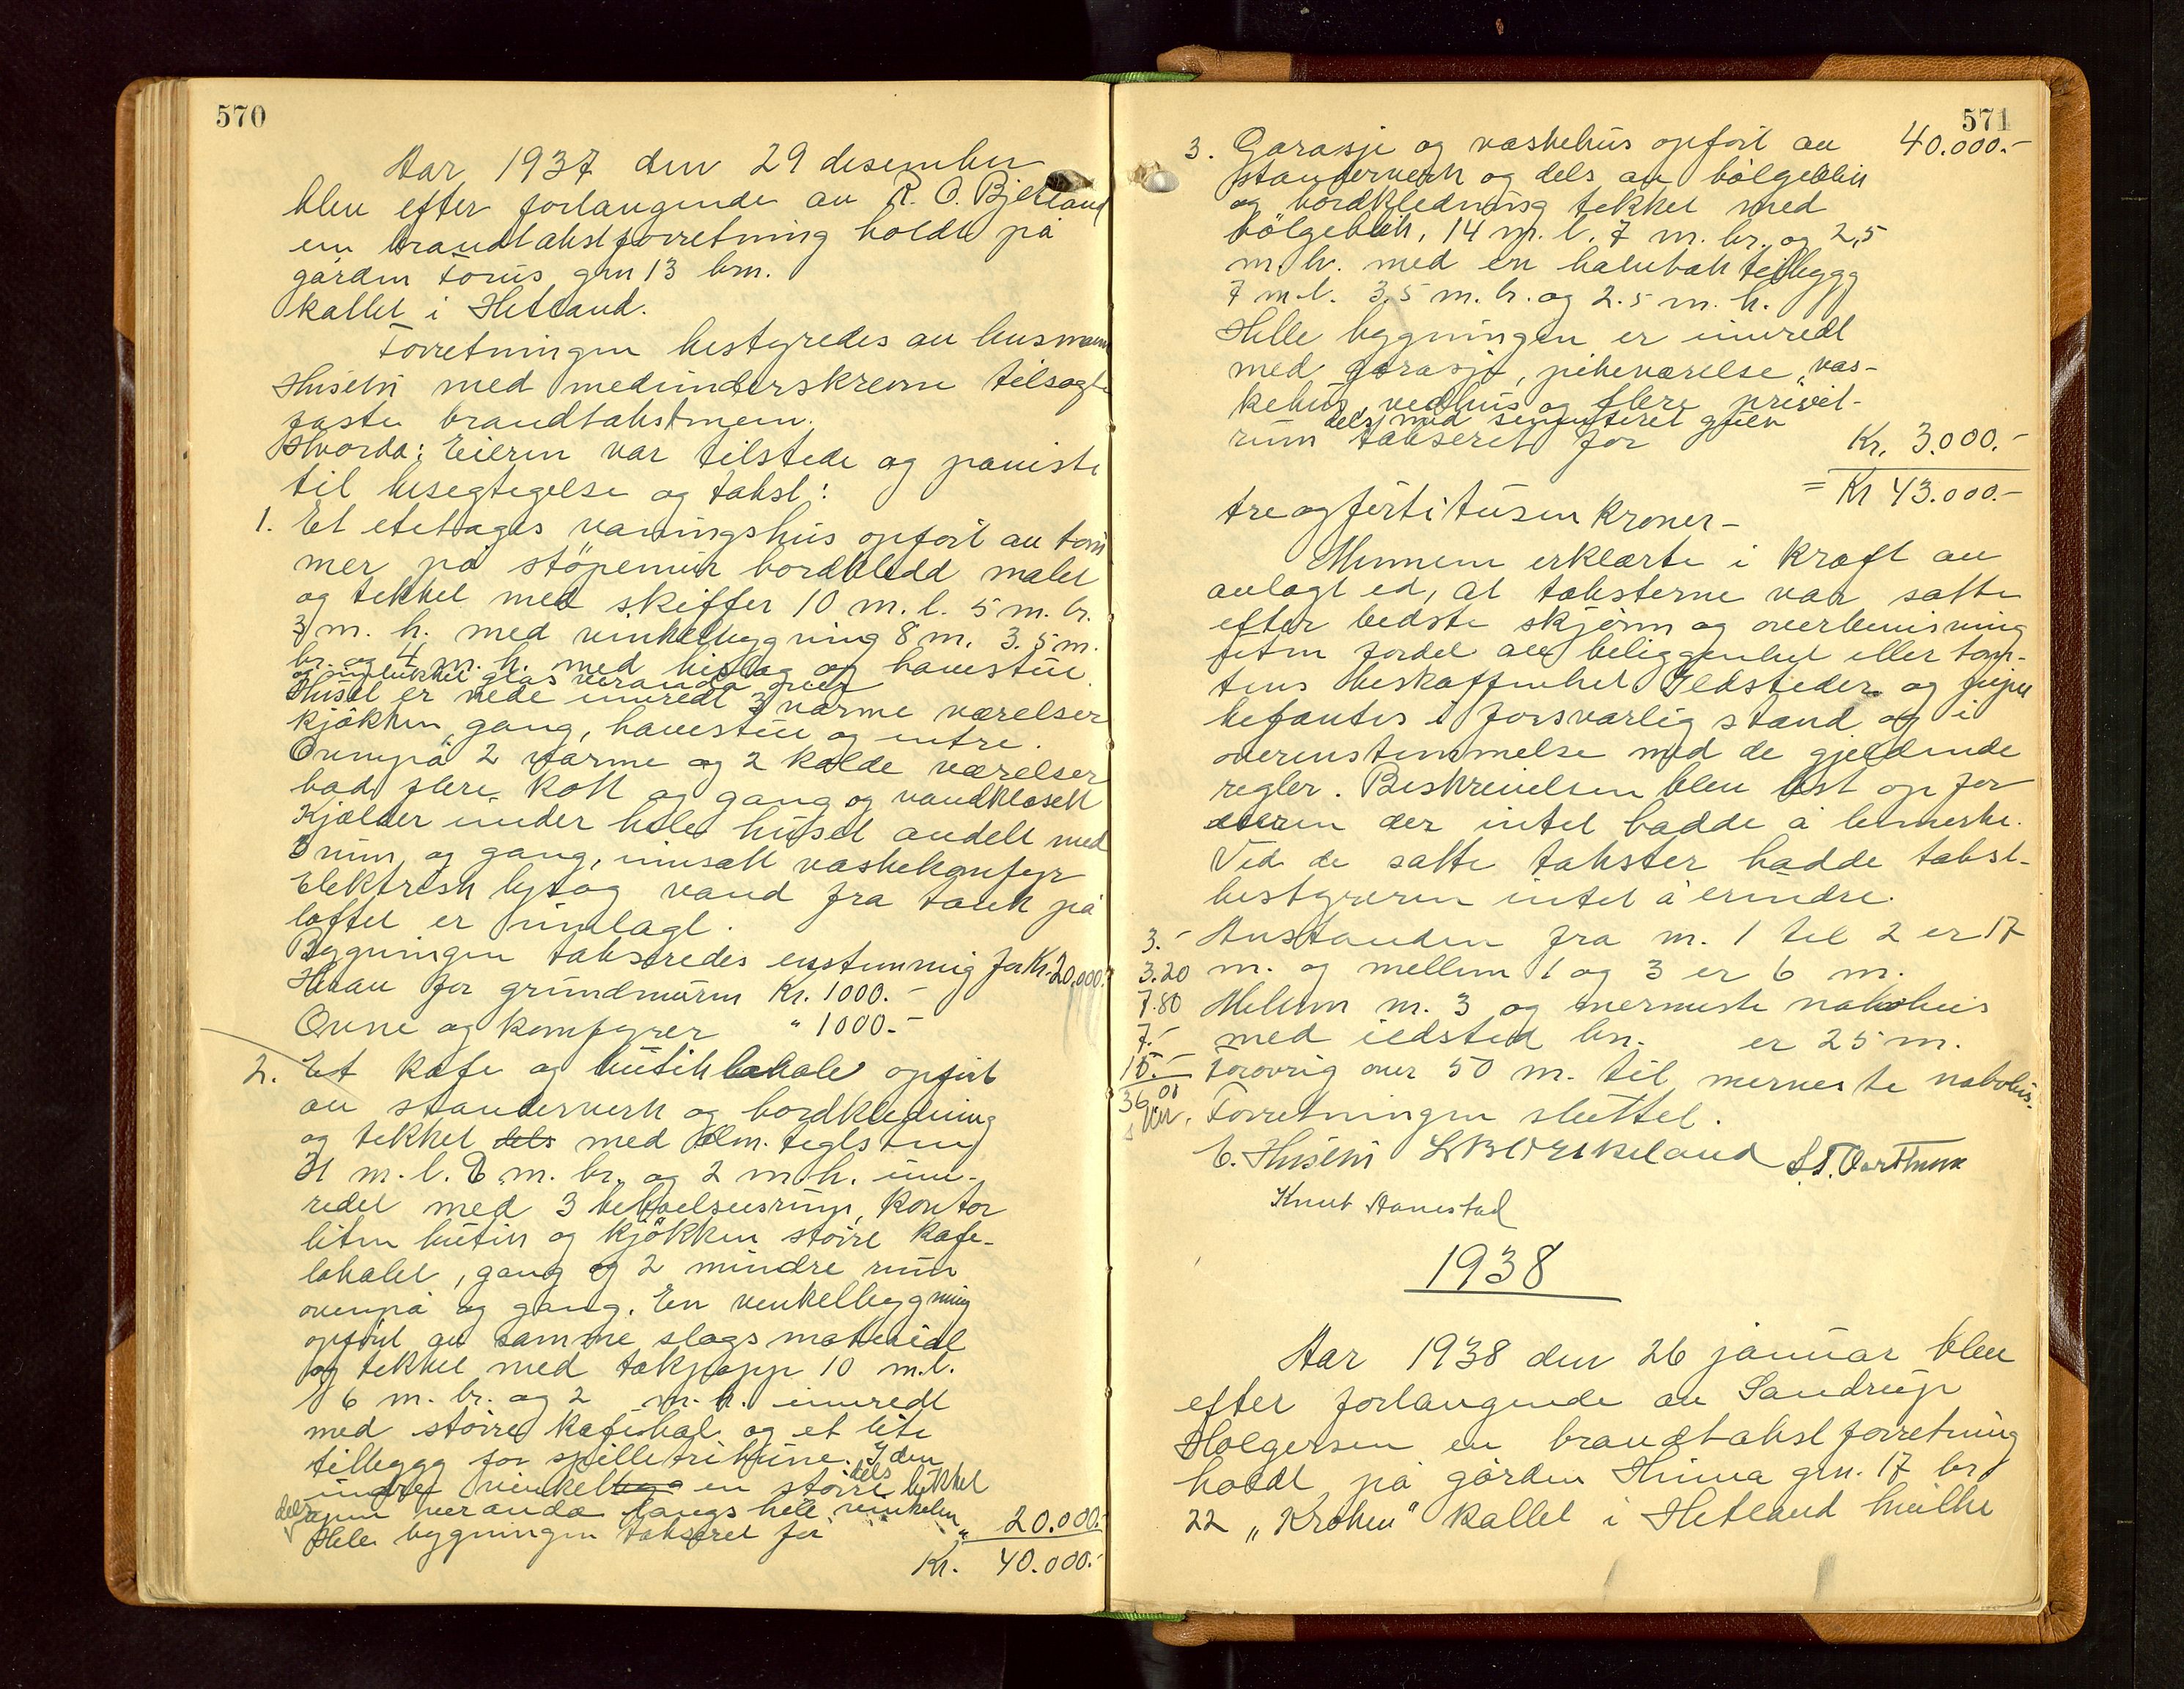 570
Aar 1937 den 29 desember
blev efter forlangende av R. O. Bjelland
en brandtakstforretning holdt på
gården Forus grn 13 brn.
kallet i Hetland.
Forretningen bestyredes av lensmann
Husebø med medunderskrevne tilsagte
faste brandtakstmenn.
Hvorda: Eieren var tilstede og paviste
til besegtegelse og takst:
1. Et etetages vaningshus opført av tøm
mer på støpemur bordkledd malet
og tekket med skiffer 10 m. l. 5 m. br.
3 m. h. med vinkelbygning 8 m. 3.5 m.
br. og 4 m. h. med bislag og havestue
og glas veranda over
Huset er nede innredt 3 varme værelser
kjøkken, gang, havestue og entre.
Ovenpå 2 varme og 2 kalde værelser
bad flere kott og gang og vandklosett
Kjælder under hele huset avdelt med
3 rum og gang, innsatt vaskekomfyr
Elektrisk lys og vand fra tank på
loftet er innlagt.
Bygningen takseredes enstemmig for Kr. 20.000.-
Herav for grundmuren Kr. 1000.-
Ovne og komfyrer " 1000.-
2. Et kafe og butiklokale opført
av standerverk og bordkledning
og tekket dels med Alm. teglsten
21 m. l. 8 m. br. og 2 m. h. inn-
redet med 3 bekvelsesrum, kontor
liten butik og kjøkken større kafe-
lokalet, gang og 2 mindre rum
ovenpå og gang. En venkelbygning
opført av samme slags material
og tekket med takpapp 10 m. l.
6 m. br. og 2 m. h. innredt
med større kafehal og et lite
tilbygg for spilletribune. I den
indre vinkel en større dels lukket
dels åpen veranda langs hele vinkelen
Hele bygningen taksert for " 20.000.-
Kr. 40.000.-
571
40.000.-
3. Garasje og vaskehus opført av
standerverk og dels av bølgeblik
og bordkledning tekket med
bølgeblik, 14 m. l. 7 m. br. og 2,5
m. h. med en halvtak tilbygg
7 m. l. 3,5 m. br. og 2.5 m. h.
Hele bygningen er innredt
med garasje, pikeværelse, vas-
kehus, vedhus og flere privet-
dels med sementeret gulv
rum takseret for Kr. 3.000.-
= Kr 43.000.-
tre og førti tusen kroner -
Mennene erklærte i kraft av
avlagt ed, at taksterne var satte
efter bedste skjønn og overbevisning
uten fordel av beliggenhet eller tom-
tens beskaffenhet Ildsteder og piper
befantes i forsvarlig stand og i
overenstemmelse med de gjeldende
regler. Beskrivelsen blev lest op for
eieren der intet hadde å bemerke.
Ved de satte takster hadde takst-
bestyreren intet å erindre.
3.- Avstanden fra m. 1 til 2 er 17
3.20 m. og mellem 1 og 3 er 6 m.
7.80 Mellem m. 3 og nermeste nabohus
7.- med ildsted brn. er 25 m.
15.- Forøvrig over 50 m. til nermeste nabohus.
36.00
Forretningen sluttet.
E. Husebø L B Werkeland
Knut Stanestad
1938
Aar 1938 den 26 januar blev
efter forlangende av Sandrup
Holgersen en brandtakstforretning
holdt på gården Hinna grn. 17 br
22 „Krohen" kallet i Hetland hvilke